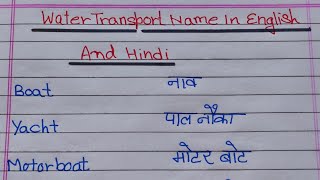 Water Transport Name In English
And Hindi
Boat नाव
Yacht पाल नौका
Motorboat मोटर बोट